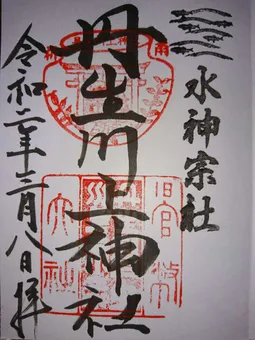 水神宗社
丹生川上神社
令和二年三月八日拝